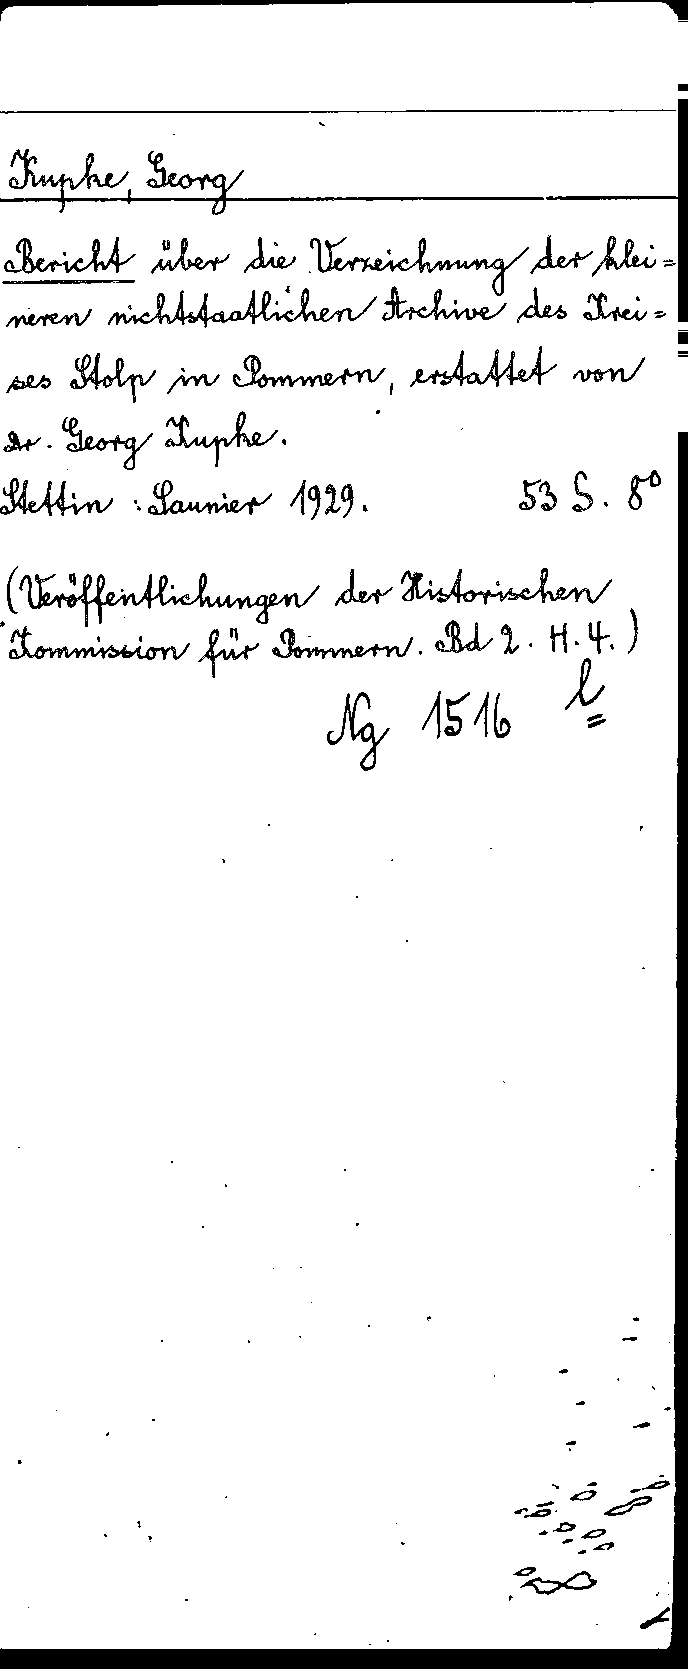 Kupke, Georg
Bericht über die Verzeichnung der klei=
neren nichtstaatlichen Archive des Krei=
ses Stolp in Pommern, erstattet von
Dr. Georg Kupke.
Stettin : Saunier 1929. 53 S. 8°
(Veröffentlichungen der Historischen
Kommission für Pommern. Bd 2. H. 4.)
Ng 1516 l